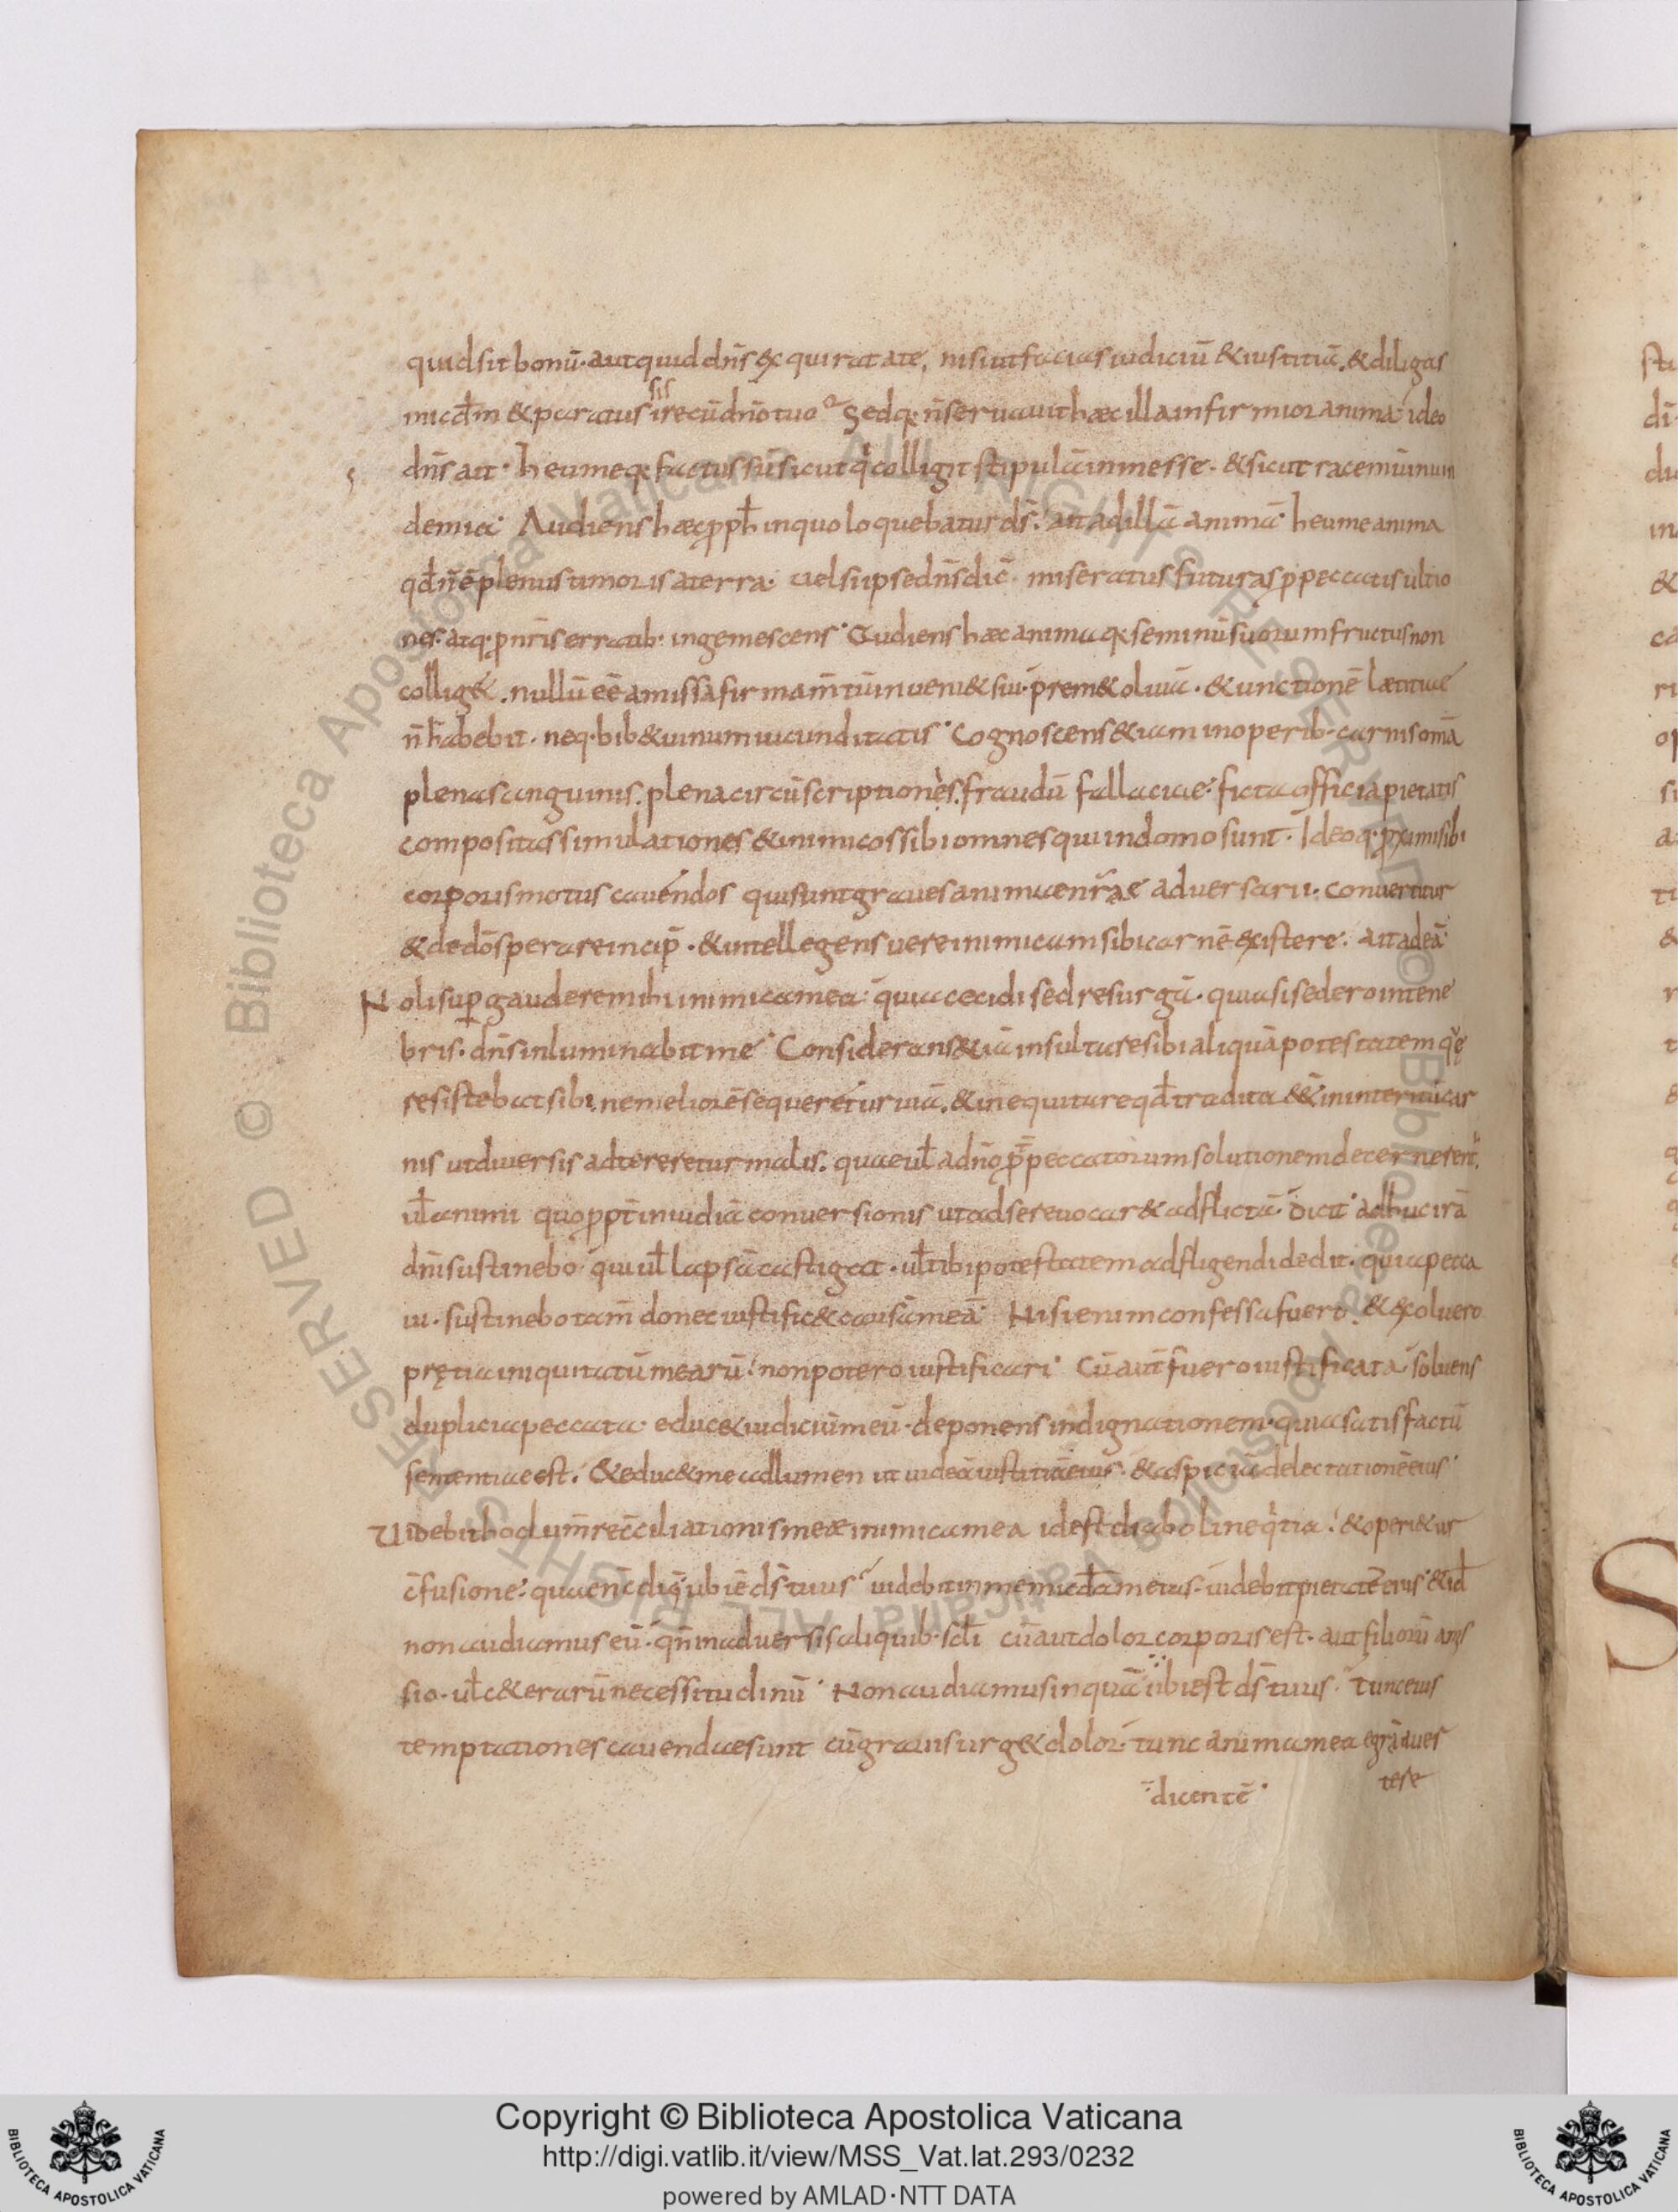 quid sit bonū· aut quid dn̄s exquirat a te, nisi ut facias iudiciū & iustitiā, & diligas
sis
micd̄m & paratus ire cū dn̄o tuo Sed q; n̄ seruauit hæc illa infirmior anima ideo
dn̄s ait· heu me q; factus sū sicut q̇ colligit stipulā in messe· & sicut racemū in uin
demia· Audiens hæc pph̄ in quo loquebatur ds̄· ait ad illā animā· heu me anima
qd̄ n̄ ē plenus timoris a terra· uel si ipse dn̄s dic̄ miseratus futuras ppeccatis ultio
nes· atq; p nr̄is erratib· ingemescens· Audiens hæc anima q; seminū suorum fructus non
collig&· nullū eē amissa firmam̄tū inueni& sui· prem& oliuā· & unctionē lætitiae
n̄ habebit· neq; bib& uinum iucunditatis· Cognoscens &iam in operib· carnis om̄a
plena sanguinis· plena circūscriptiones· fraudū fallaciae· ficta officia pietatis
compositas simulationes & inimicos sibi omnes qui in domo sunt· Ideoq; pximi sibi
corporis motus cauendos qui sunt graues animae nr̄ae aduersarii· conuertitur
& de dō sperare incip̄· & intellegens uere inimicam sibi carnē existere· ait ad eā·
Noli sup gaudere mihi inimica mea· quia cecidi sed resurgā· quia si sedero in tene
bris· dn̄s inluminabit me· Considerans &iā insultare sibi aliquā potestatem quę
resistebat sibi, ne meliorē sequeretur uiā,
nis ut diuersis adtereretur malis· quae ul̄ ad dn̄o pp̄ peccatorum solutionem decernerent̄,
ul̄ animi quo ppt̄ inuidiā conuersionis ut ad se reuocar& adflictā dicit· adhuc irā
dn̄i sustinebo qui ul̄ lapsā castigat· ul̄ tibi potestatem adfligendi dedit· quia pecca
ui· sustinebo tam̄ donec iustific& causā meā· Nisi enim confessa fuero & exoluero
pretia iniquitatū mearū· non potero iustificari· Cū aut̄ fuero iustificata soluens
duplicia peccata· educ& iudiciū meū· deponens indignationem· quia satisfactū
sententiae est· & educ& me ad lumen ut uideā iustitiā eius· & aspiciā delectationē eius·
Uidebit hoc lum̄ rec̄ciliationis meæ inimica mea id est diaboli neq̇tia· & operi&ur
c̄fusione· quae n̄c dicit ubi ē ds̄ tuus uidebit in me micd̄iam eius· uidebit pietatē eius· & id̄
non audiamus eū· qn̄ in aduersis aliquib· scl̄i cū aut dolor corporis est· aut filiorū amis
sio· ul̄ c&erarū necessitudinū· Non audiamus inquā ubi est ds̄ tuus· Tunc eius
temptationes cauendae sunt cū grauis surg& dolor· tunc anima mea egra aues
dicentē·
tese